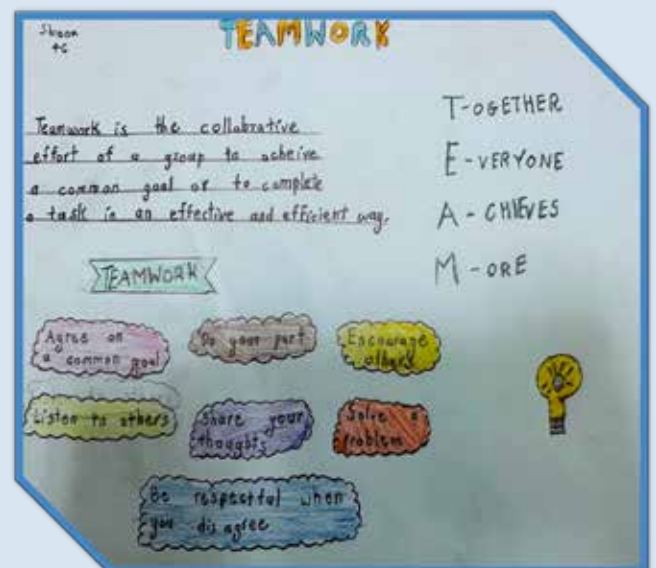 TEAMWORK
4G
Teamwork is the collabrative
effort of a group to acheive
a common goal or to complete
a task in an effective and efficient way.
T-OGETHER
E-VERYONE
A-CHIEVES
M-ORE
TEAMWORK
Agree on
a common goal
Do your part
Encourage
others
Listen to others
Share your
thoughts
Solve a
problem
Be respectful when
you disagree